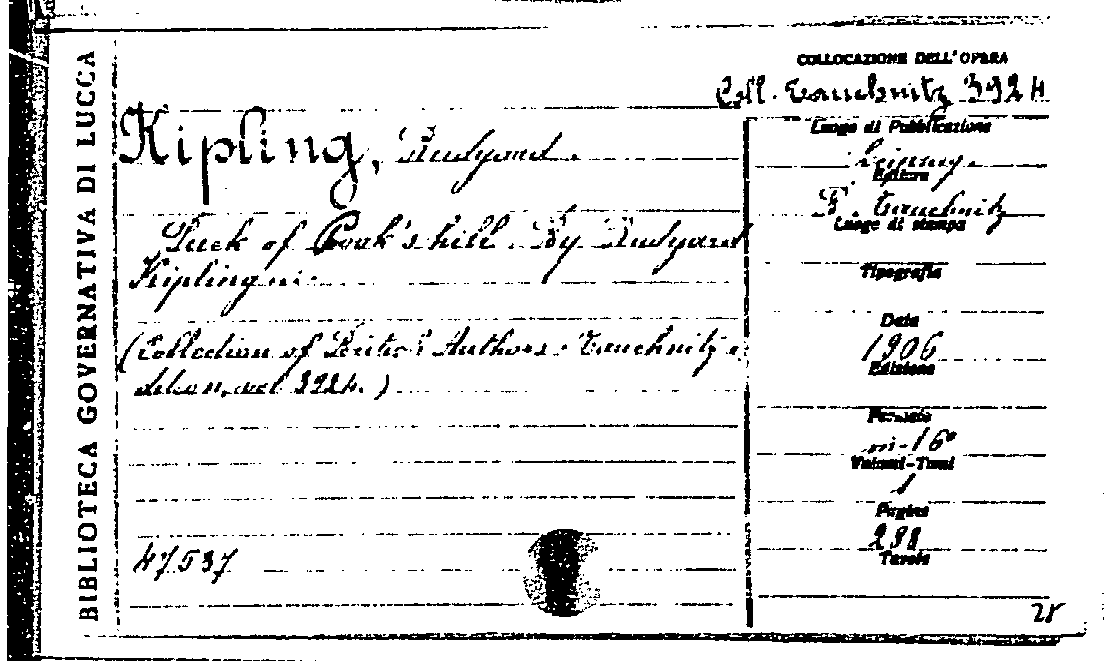 BIBLIOTECA GOVERNATIVA DI LUCCA
COLLOCAZIONE DELL'OPERA
Coll. Tauchnitz 3924
Kipling, Rudyard.
Puck of Pook's hill. By Rudyard
Kipling
(Collection of Autors. Tauchnitz e-
dition, vol 3924.)
47537
Luogo di Pubblicazione
Leipzig.
Editore
B. Tauchnitz
Luogo di stampa
Tipografia
Data
1906
Edizione
Formato
in-16°
Volumi-Tomi
1
Pagine
298
Tavole
28